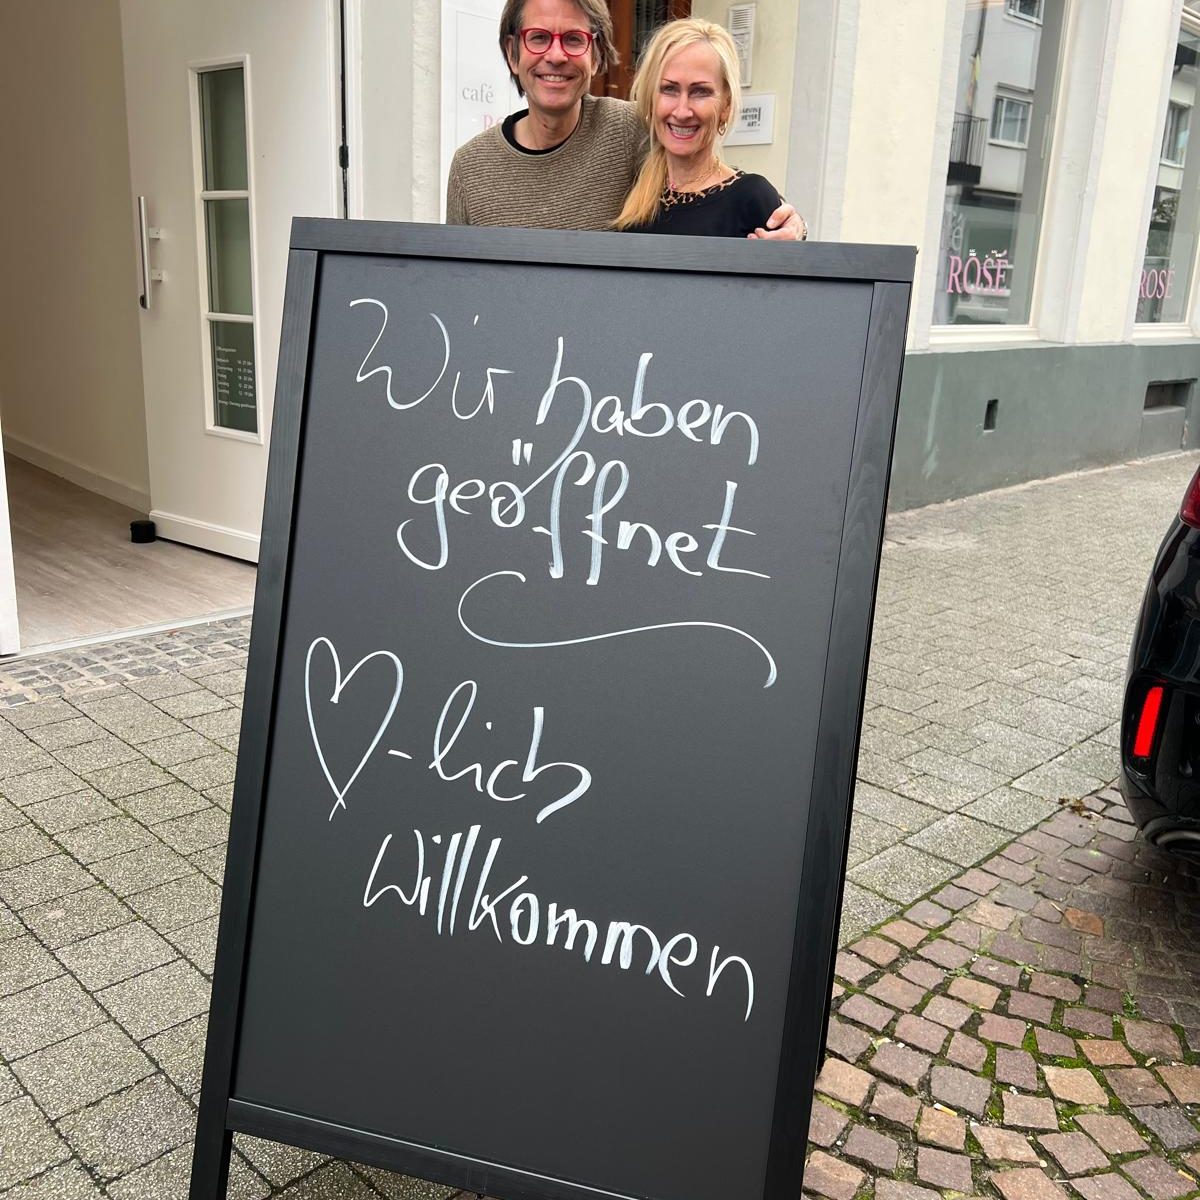 café
ARVIN
MEYER
ART.
ROSÉ
ROSÉ
Wir haben
geöffnet
♡-lich
willkommen